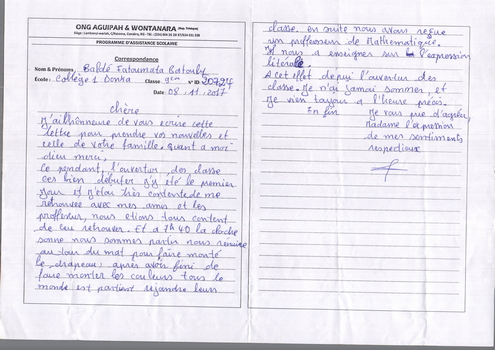 ONG AGUIPAH & WONTANARA
PROGRAMME D'ASSISTANCE SCOLAIRE
Correspondance
Nom & Prénoms, Baldé Fatoumata Batouly
École: Collège 1 Donka Classe 9em N° ID 20724
Date: 08.11.2017
Chère
J'ailhonneure de vous ecrire cette
lettre pour prendre vos nouvelles et
celle de votre famille. quant a moi
dieu merci,
Ce pendant, l'ouvertur des classe
ces bien débuter j'y été le premier
jour et j'étai très contente de me
retrouvee avec mes amis et les
proffesseur, nous etions tous content
de ceu retrouver. Et a 7h 40 la cloche
sonne nous sommes partir nous réunire
autour du mat pour faire monté
le drapeau; après avoir fini de
faire monter les couleurs tous le
monde est partient rejoindre leurs
classe. en suite nous avons reçue
un proffesseurs de Mathématique.
Il nous a enseigner sur l'expression
litérale.
A cet effet depui l'ouvertur des
classe. Je n'ai jamai sommes, et
Je vien toujour a l'heure précis.
En fin Je vous prie d'agréer,
Madame l'expression
de mes sentiments
respectieux